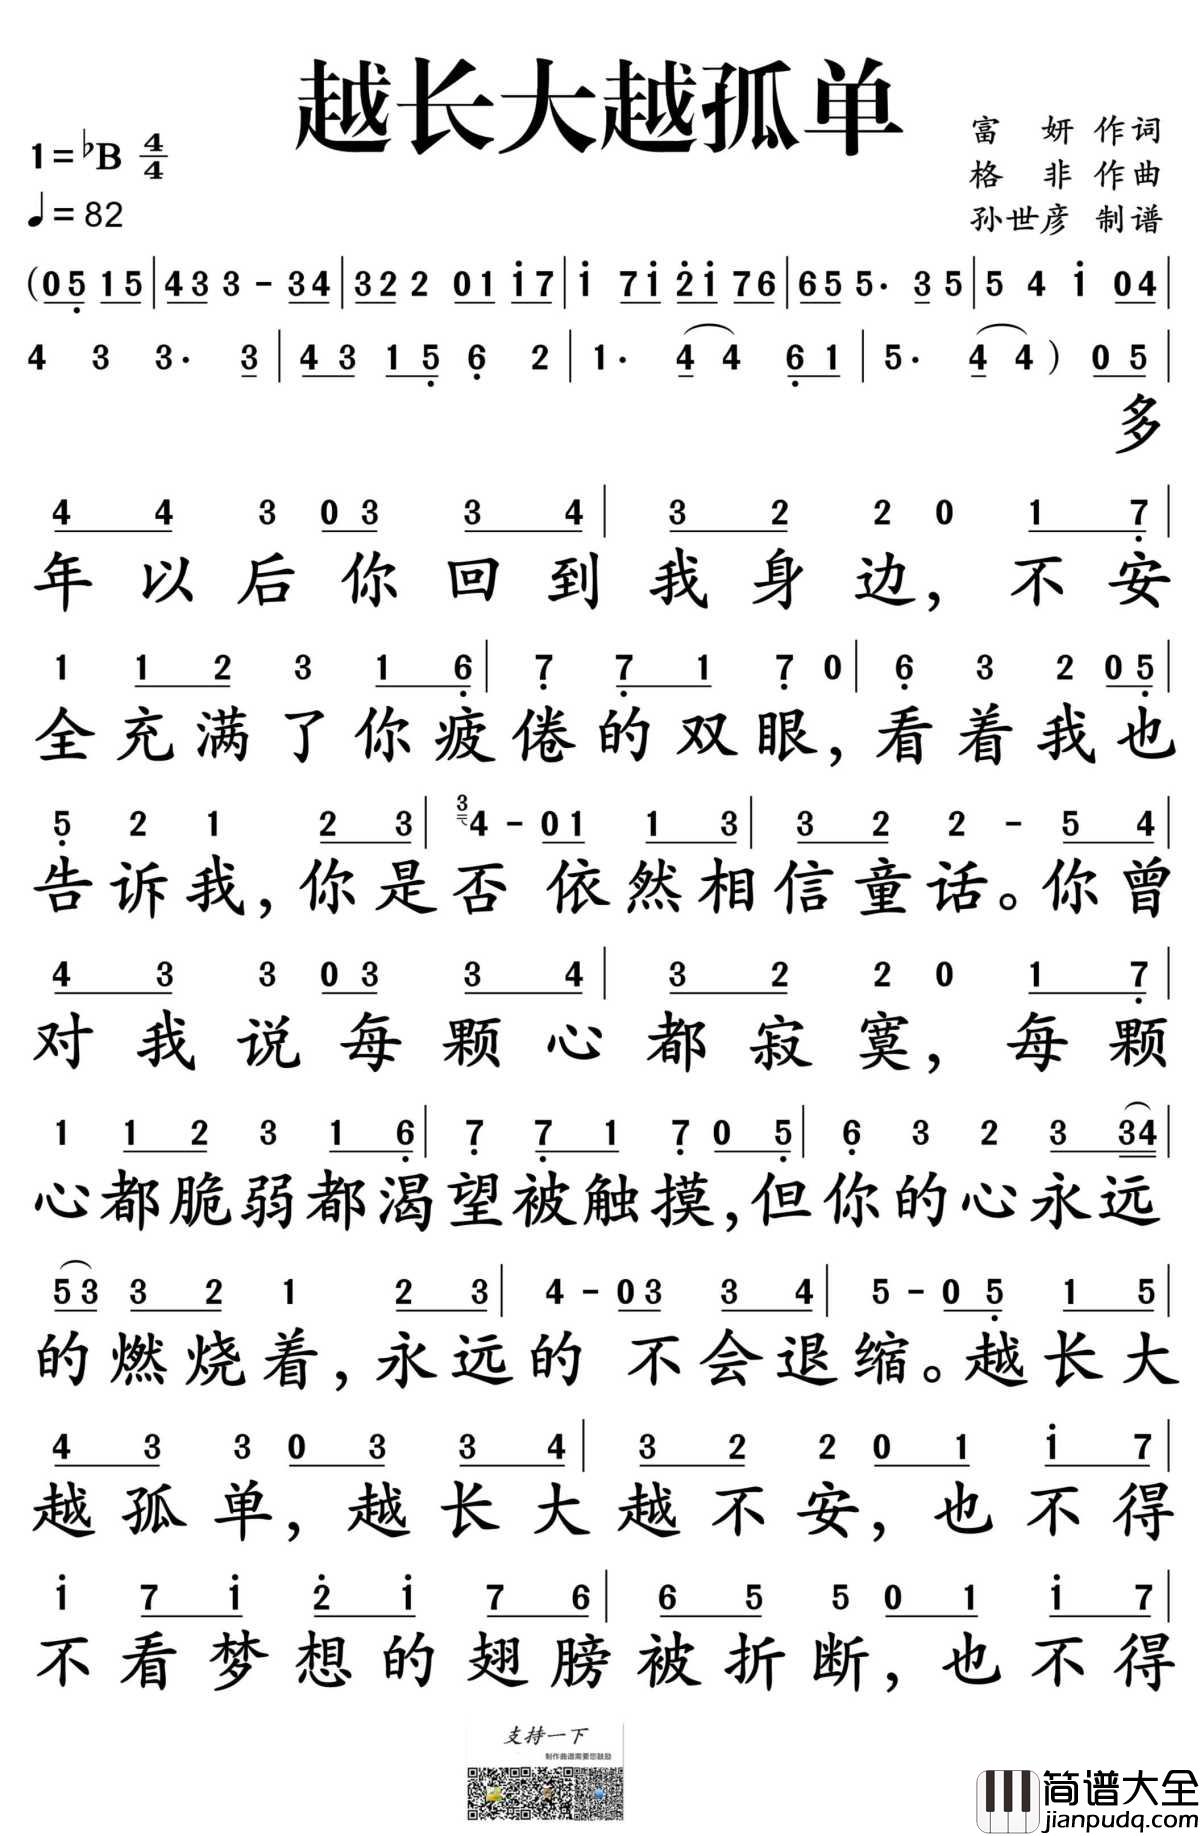 越长大越孤单
富 妍 作词
1=♭B 4/4
格 非 作曲
♩= 82
孙世彦 制谱
(05 15|433-34|322 01 i7|i 7i 2i 76|655. 35|5 4 i 04|
4 3 3. 3|43 15 6 2|1. 44 61|5. 44) 05|
多
4 4 3 03 3 4|3 2 2 0 1 7|
年以后你回到我身边,不安
1 12 3 16|7 71 7 0|6 3 2 05|
全充满了你疲倦的双眼,看着我也
5 2 1 23|34-01 13|32 2-54|
告诉我,你是否依然相信童话。你曾
4 3 3 03 3 4|3 2 2 0 1 7|
对我说每颗心都寂寞,每颗
1 12 3 16|7 71 7 05|6 3 2 3 34|
心都脆弱都渴望被触摸,但你的心永远
53 32 1 23|4-03 34|5-05 15|
的燃烧着,永远的不会退缩。越长大
4 3 3 0 3 3 4|3 2 2 0 1 i 7|
越孤单,越长大越不安,也不得
i 7 i 2 i 7 6|6 5 5 0 1 i 7|
不看梦想的翅膀被折断,也不得
支持一下
制作曲谱需要您鼓励
简谱大全
jianpudq.com